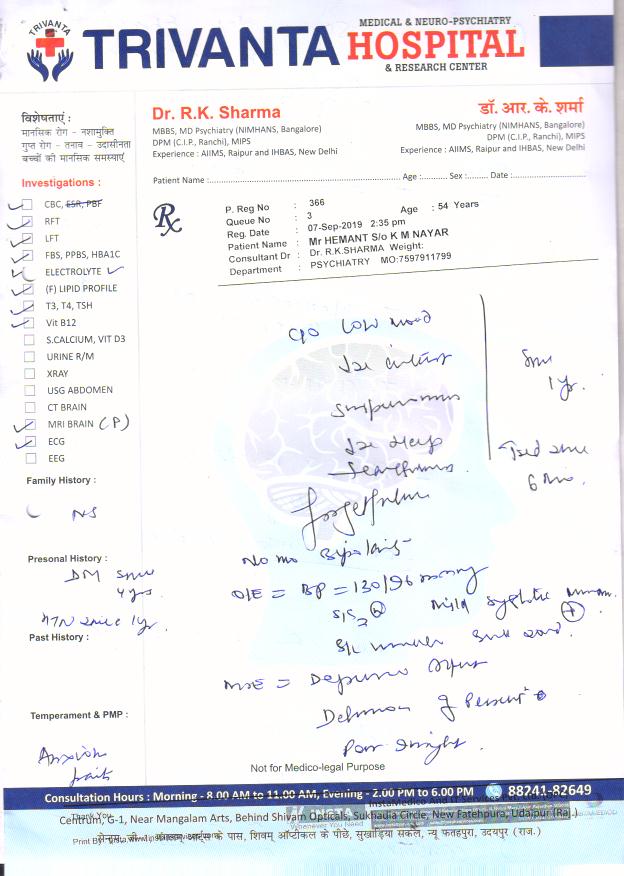 TRIVANTA
TRIVANTA
MEDICAL & NEURO-PSYCHIATRY
HOSPITAL
& RESEARCH CENTER
विशेषताएं :
मानसिक रोग - नशामुक्ति
गुप्त रोग - तनाव - उदासीनता
बच्चों की मानसिक समस्याएं
Dr. R.K. Sharma
MBBS, MD Psychiatry (NIMHANS, Bangalore)
DPM (C.I.P., Ranchi), MIPS
Experience : AIIMS, Raipur and IHBAS, New Delhi
डॉ. आर. के. शर्मा
MBBS, MD Psychiatry (NIMHANS, Bangalore)
DPM (C.I.P., Ranchi), MIPS
Experience : AIIMS, Raipur and IHBAS, New Delhi
Patient Name : Age : Sex : Date :
Rx
P. Reg No : 366
Queue No : 3 Age : 54 Years
Reg. Date : 07-Sep-2019 2:35 pm
Patient Name : Mr HEMANT S/o K M NAYAR
Consultant Dr : Dr. R.K.SHARMA Weight:
Department : PSYCHIATRY MO:7597911799
Investigations :
CBC, ESR, PBF
RFT
LFT
FBS, PPBS, HBA1C
ELECTROLYTE
(F) LIPID PROFILE
T3, T4, TSH
Vit B12
S.CALCIUM, VIT D3
URINE R/M
XRAY
USG ABDOMEN
CT BRAIN
MRI BRAIN (P)
ECG
EEG
Family History :
NS
Presonal History :
DM since
4 yrs
HTN since 1yr.
Past History :
Temperament & PMP :
Anxious
traits
C/O Low mood
1 yr.
6 Mo.
forgetfulness
No H/O Bipolarity
O/E = BP = 130/96 mmHg
S/S2 Mild systolic murmur +
MSE = Depressed affect
Delusion of Persecut
Poor Insight.
Not for Medico-legal Purpose
Consultation Hours : Morning - 8.00 AM to 11.00 AM, Evening - 2.00 PM to 6.00 PM 88241-82649
Centrum, G-1, Near Mangalam Arts, Behind Shivam Opticals, Sukhadia Circle, New Fatehpura, Udaipur (Raj.)
सेन्ट्रम, जी-1, मंगलम् आर्ट्स के पास, शिवम् ऑप्टीकल के पीछे, सुखाड़िया सर्कल, न्यू फतहपुरा, उदयपुर (राज.)